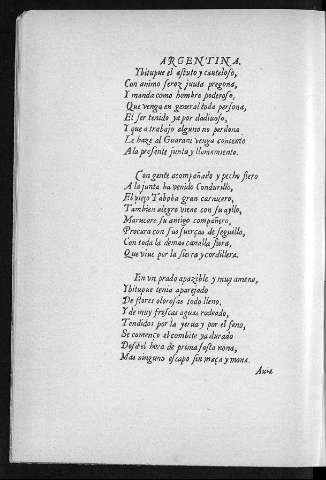 ARGENTINA.
Ybitupue el astuto y cauteloso,
Con animo feroz junta pregona,
Y manda como hombre poderoso,
Que venga en general toda persona,
El ser tenido ya por dadiuoso,
Y que a trabajo alguno no perdona
Le haze al Guarani venga contento
A la presente junta y llamamiento.
Con gente acompañado y pecho fiero
A la junta ha venido Condurillo,
El viejo Taboba gran carnicero,
Tambien alegre viene con su
Marucare su antigo compañero,
Procura con sus fuerças de seguillo,
Con toda la demas canalla fiera,
Que viue por la sierra y cordillera.
En vn prado apazible y muy ameno,
Ybitupue tenia aparejado
De flores olorosas todo lleno,
Y de muy frescas aguas rodeado,
Tendidos por la yerua y por el feno,
Se començo el combite ya durado
Desde el hora de prima sesta nona,
Mas ninguno escapo sin maça y mona.